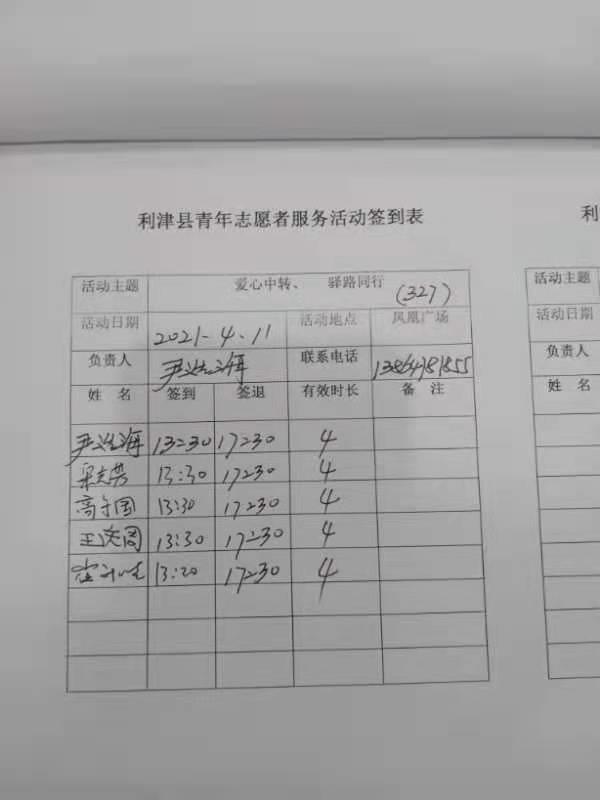 利津县青年志愿者服务活动签到表
利
活动主题 爱心中转、 驿路同行 (327)
活动主题
活动日期 2021-4.11 活动地点 凤凰广场
活动日期
负责人 联系电话 13864781855
负责人
姓 名 签到 签退 有效时长 备 注
姓 名
13:30 17:30 4
13:30 17:30 4
高守国 13:30 17:30 4
13:30 17:30 4
13:20 17:30 4